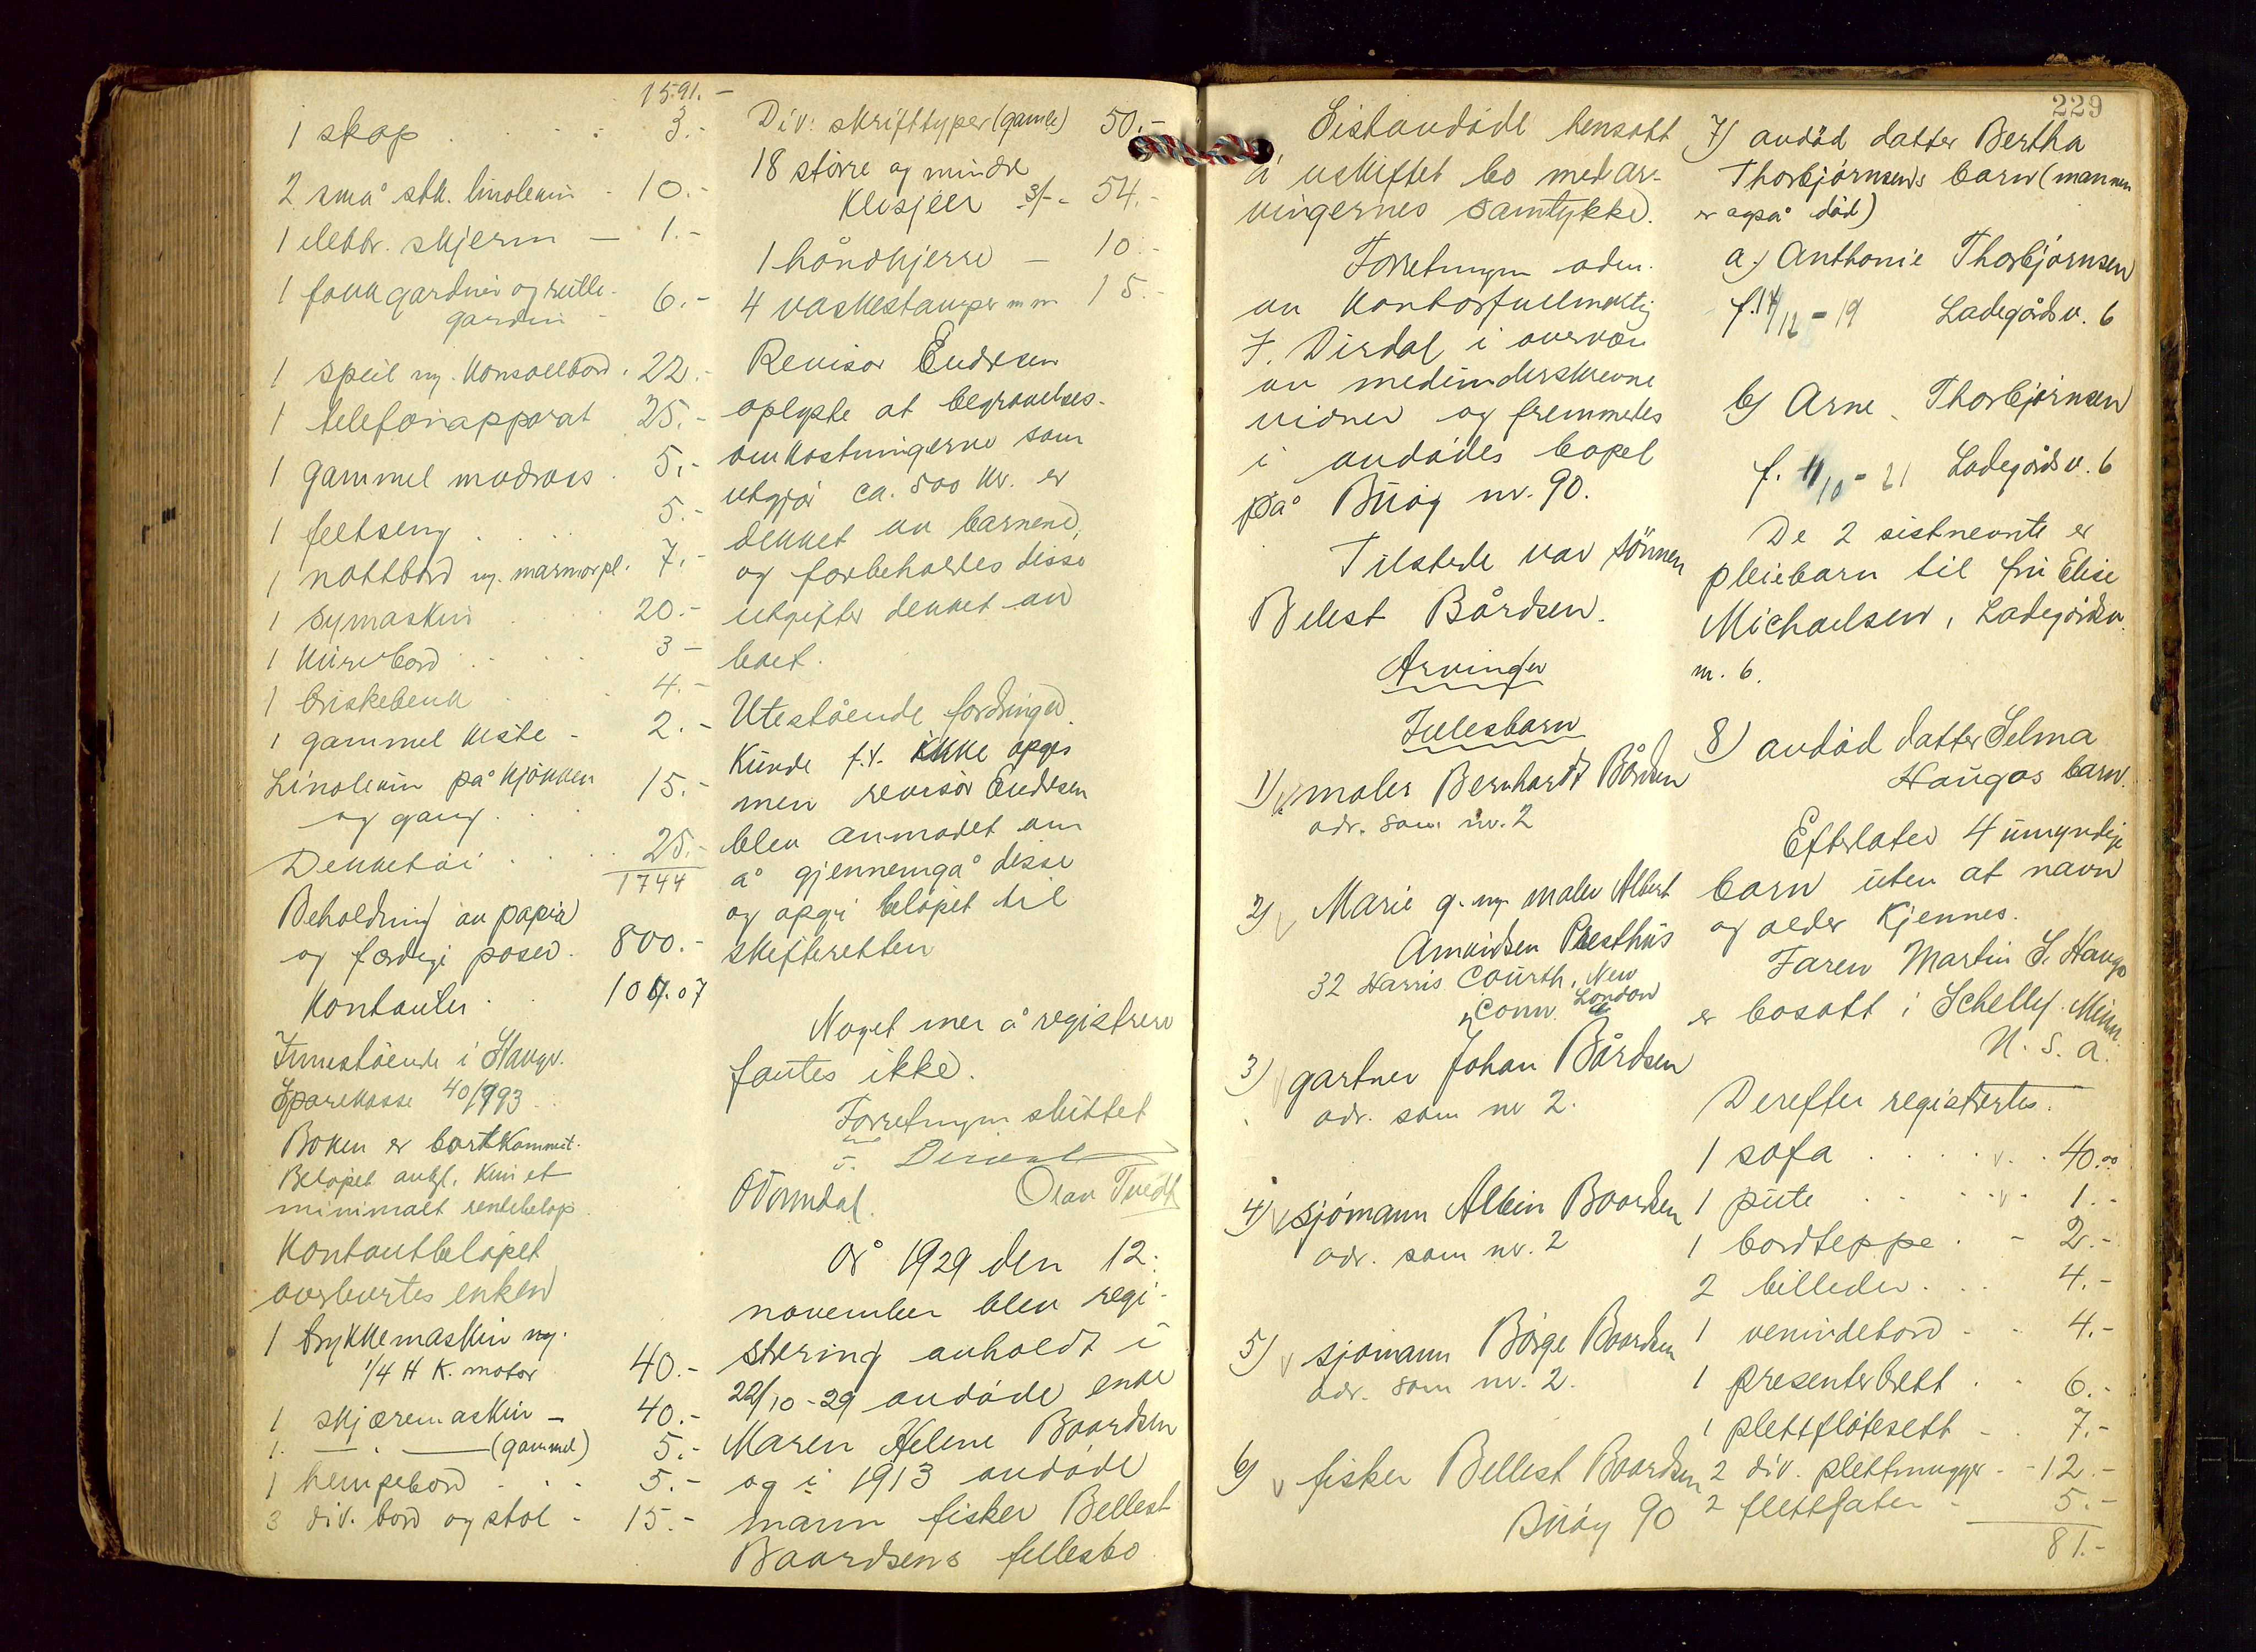 1591.-
1 skap . . . 3.-
2 små stk. linoleum - 10.-
1 elektr. skjerm - 1.-
1 fakk gardiner og rulle-
gardin - 6.-
1 speil og konsollbord . 22.-
1 telefonapparat 25.-
1 gammel madrass . 5.-
1 feltseng . . . 5.-
1 nattbord og marmorpl. 7.-
1 symaskin . . 20.-
1 kurvbord . . . 3-
1 briskebenk . . 4.-
1 gammel kiste - 2.-
Linoleum på kjøkken
og gang . . 15.-
Dekketøi . . . . 25.-
1744
Beholdning av papir
og færdige poser . 800.-
Kontanter . . 107.07
Innestående i Stavgr.
Sparekasse 40/993 . .
Boken er bortkommet.
Beløpet antgl. kun et
minimalt rentebeløp.
Kontantbeløpet
overlevertes enken
1 trykkemaskin og
1/4 H K. motor 40.-
1 skjæremaskin - 40.-
1. — . — (gammel) 5.-
1 hempebord . . . 5.-
3 div. bord og stol - 15.-
Div. skrifttyper (gamle) 50.-
18 større og mindre
klisjeer 3/- - 54.-
1 håndkjerre - 10.-
4 vaskestamper m m 15.-
Revisor Endresen
oplyste at begravelses-
omkostningerne som
utgjør ca. 500 kr. er
dekket av barnene,
og forbeholdtes disse
utgifter dekket av
boet.
Utestående fordringer
kunde f.t. ikke opgis
men revisor Endresen
blev anmodet om
å gjennemgå disse
og opgi beløpet til
skifteretten
Noget mer å registrere
fantes ikke.
Forretningen sluttet
Dirdal
O Tonndal. Olav Tvedt
År 1929 den 12.
november blev regi-
strering avholdt i
22/10-29 avdøde enke
Maren Helene Baardsen
og i 1913 avdøde
mann fisker Bellest
Baardsens fellesbo
229
Sistavdøde hensatt
i uskiftet bo med ar-
vingernes samtykke.
Forretningen adm.
av kontorfullmektig
F. Dirdal i overvær
av medunderskrevne
vidner og fremmedes
i avdødes bopel
på Buøy nr. 90.
Tilstede var sønnen
Belest Bårdsen.
Arvinger
Fellesbarn
1) v maler Bernhardt Bårdsen
adr. som nr. 2
2) v Marie g. m. maler Albert
Amundsen Presthus
32 Harris Courth, New
London
Conn.
3) v gartner Johan Bårdsen
adr. som nr 2.
4) v sjømann Albin Baardsen
adr. som nr. 2
5) v sjømann Børge Baardsen
adr. som nr. 2.
6) v fisker Bellest Baardsen
Buøy 90
7) avdød datter Bertha
Thorbjørnsens barn (mannen
er også død)
a.) Anthonie Thorbjørnsen
f. 14/12 - 19 Ladegårdsv. 6
b) Arne Thorbjørnsen
f. 11/10 - 21 Ladegårdsv. 6
De 2 sistnevnte er
pleiebarn til fru Elise
Michaelsen, Ladegårdsv.
nr. 6.
8) avdød datter Selma
Haugos barn.
Efterlater 4 umyndige
barn uten at navn
og alder kjennes.
Faren Martin S. Haugo
er bosatt i Schelly Minn.
U. S. A.
Derefter registrertes.
1 sofa . . . . v . . 40.00
1 pute . . . . v . 1.-
1 bordteppe . - 2.-
2 billeder . . . 4.-
1 venindebord - - 4.-
1 presenterbrett . . 6.-
1 plettfløtesett - . 7.-
2 div. plettmugger - - 12.-
2 plettfater - 5.-
81.-